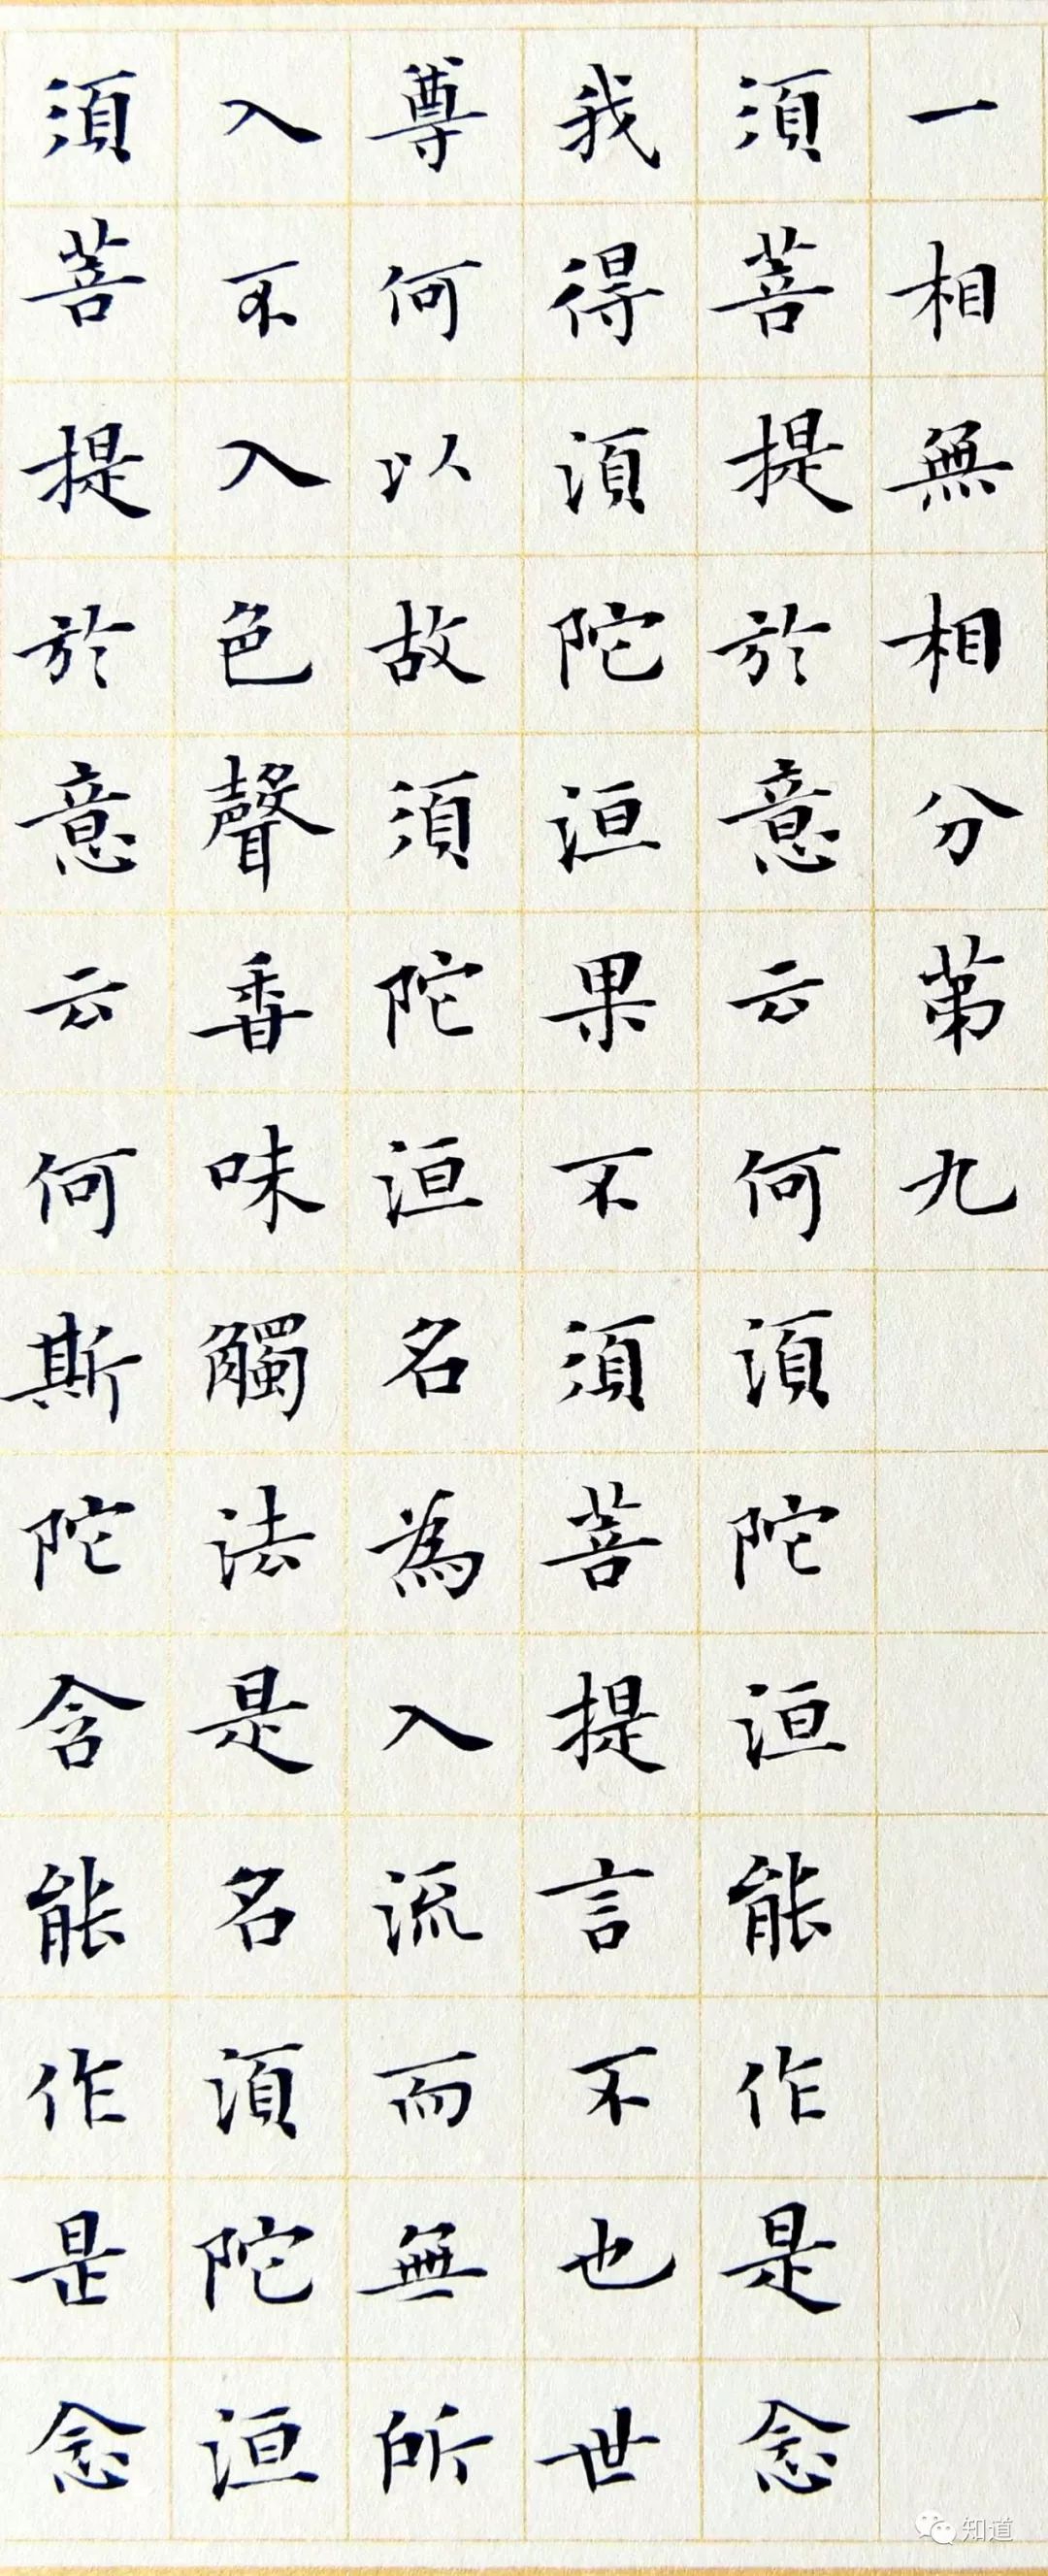 一相無相分第九
須菩提於意云何須陀洹能作是念
我得須陀洹果不須菩提言不也世
尊何以故須陀洹名為入流而無所
入不入色聲香味觸法是名須陀洹
須菩提於意云何斯陀含能作是念
知道